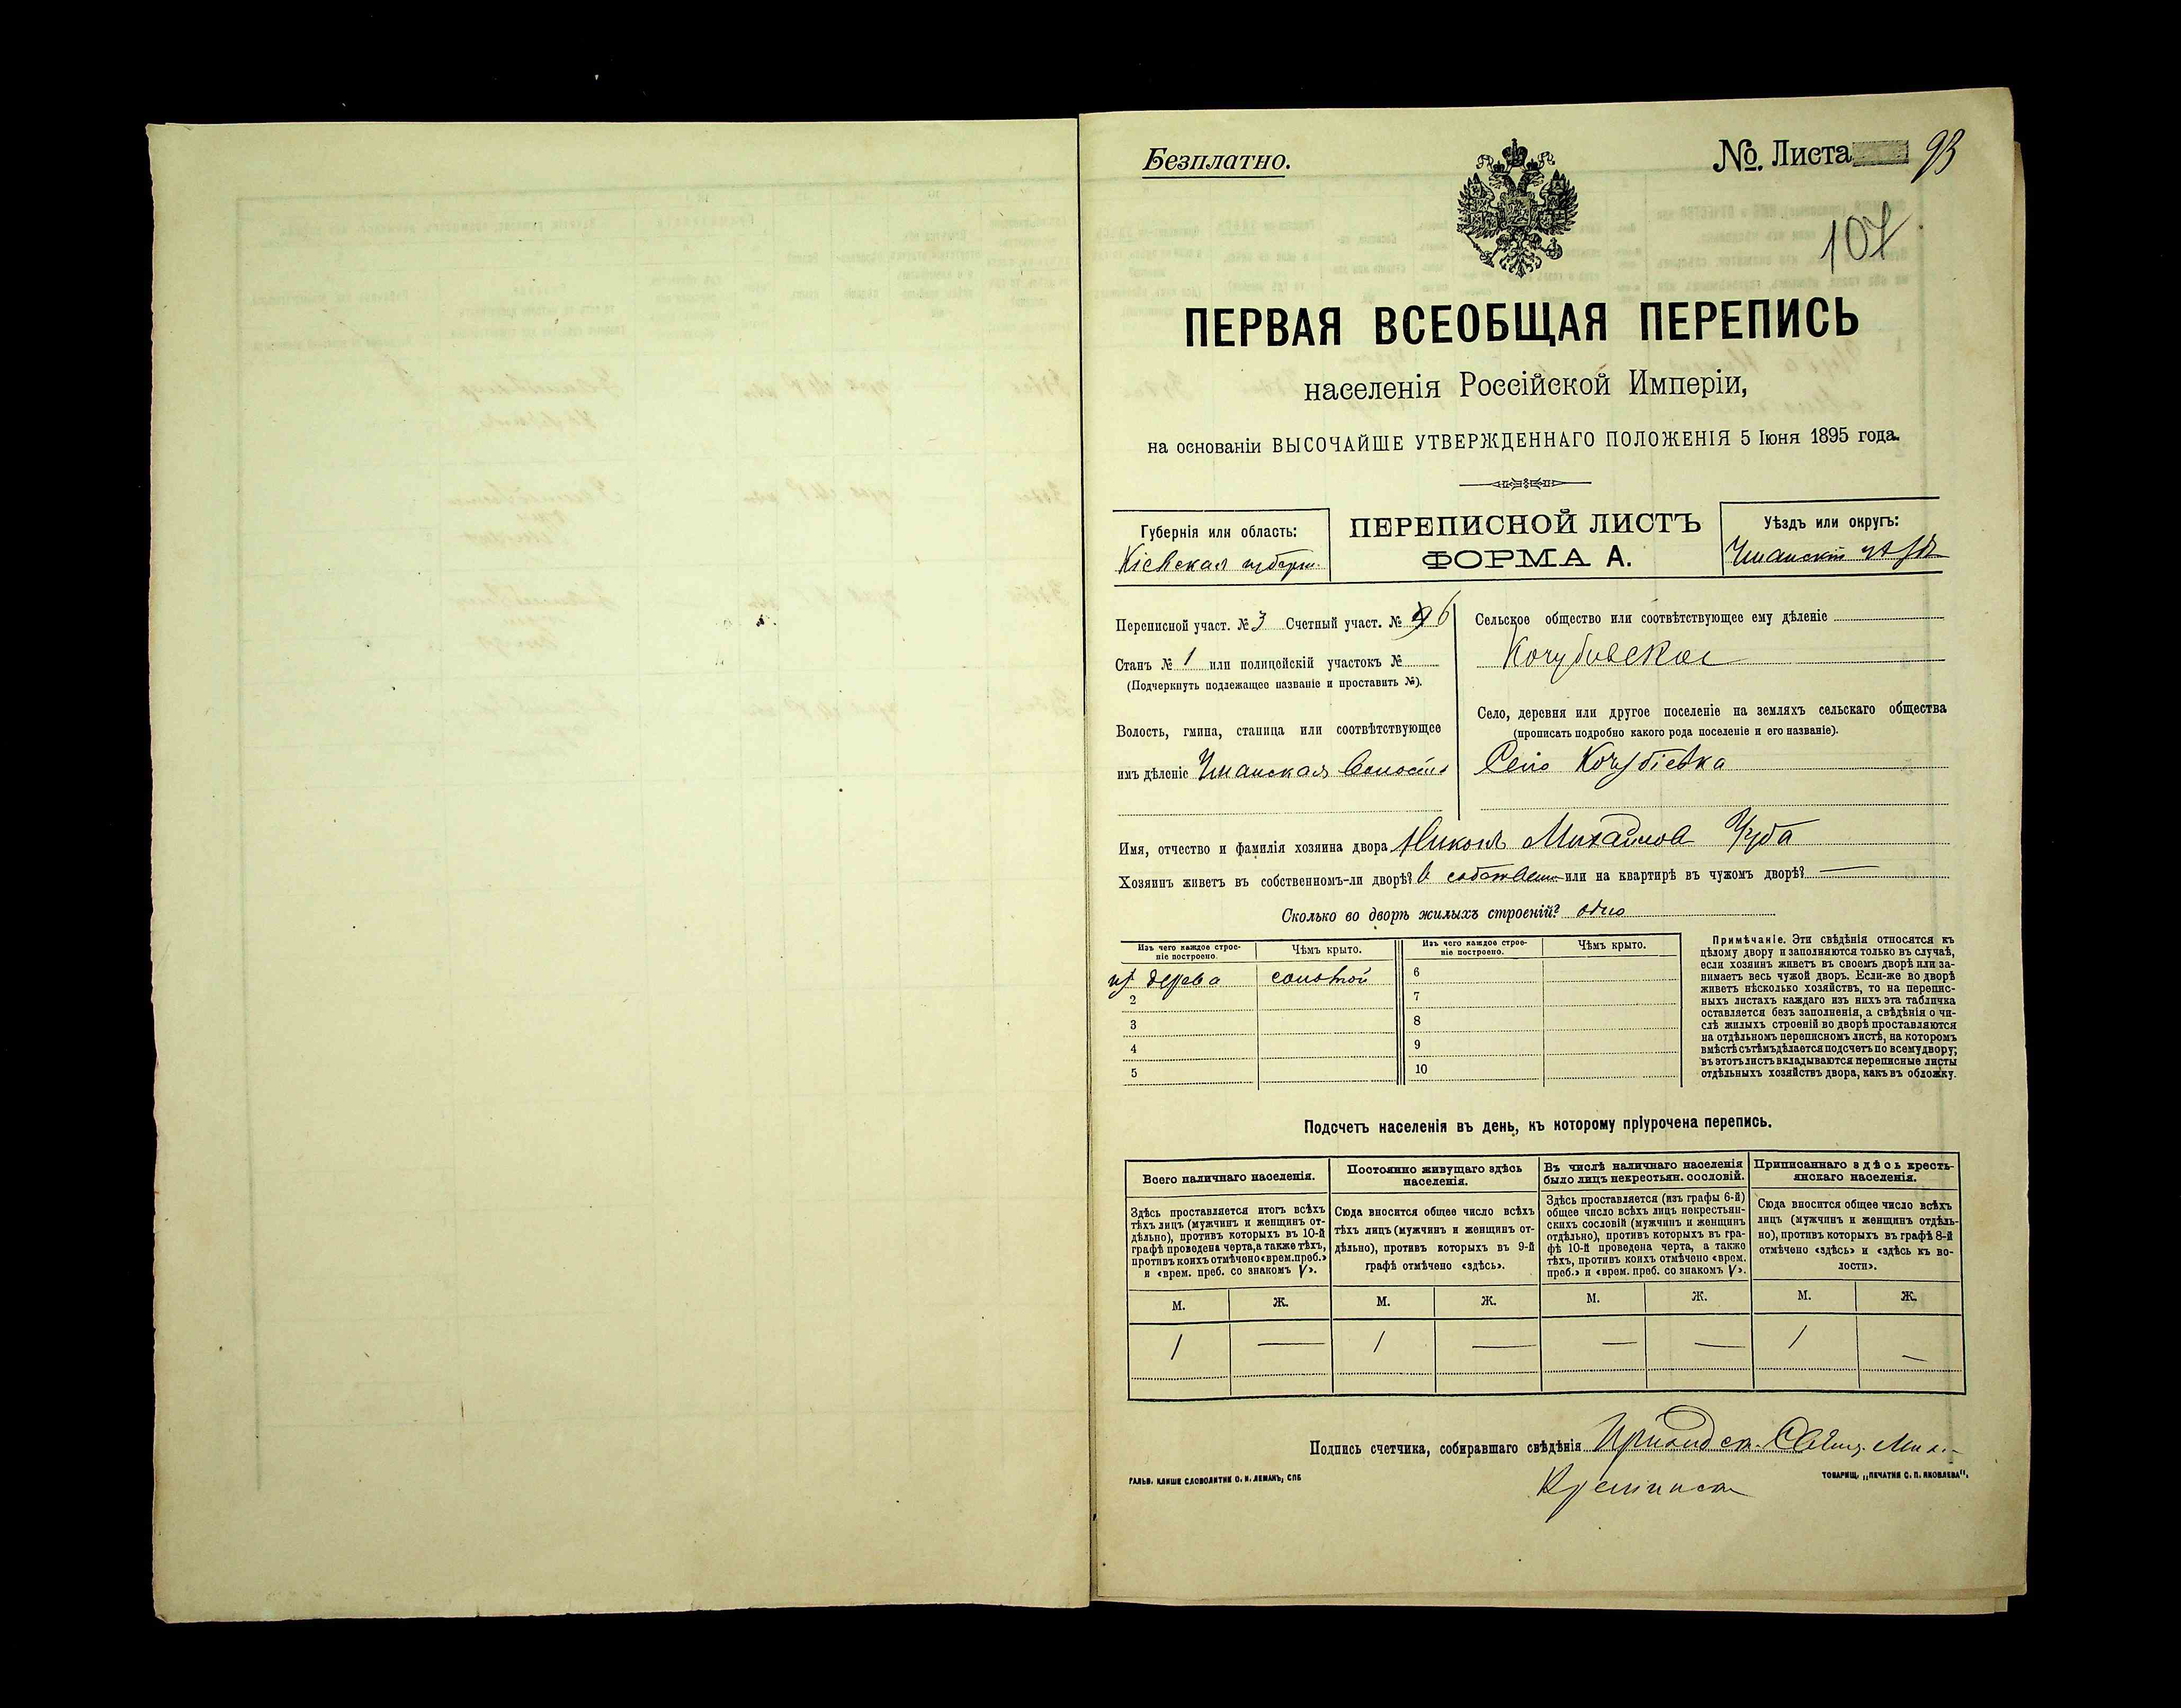 Безплатно.
№ Листа 93
107
ПЕРВАЯ ВСЕОБЩАЯ ПЕРЕПИСЬ
населенія Россійской Имперіи,
на основаніи ВЫСОЧАЙШЕ УТВЕРЖДЕННАГО ПОЛОЖЕНІЯ 5 Іюня 1895 года.
Губернія или область:
Кіевская губерн.
ПЕРЕПИСНОЙ ЛИСТЪ
ФОРМА А.
Уѣздъ или округъ:
Уманскій уѣздъ
Переписной участ. № 3 Счетный участ. № 6
Станъ № 1 или полицейскій участокъ №
(Подчеркнуть подлежащее названіе и проставить №).
Волость, гмина, станица или соотвѣтствующее
имъ дѣленіе Уманская Волость
Сельское общество или соотвѣтствующее ему дѣленіе
Кочубивское
Село, деревня или другое поселеніе на земляхъ сельскаго общества
(прописать подробно какого рода поселеніе и его названіе).
Село Кочубіевка
Имя, отчество и фамилія хозяина двора Никонъ Михайлов Чуба
Хозяинъ живетъ въ собственномъ-ли дворѣ? в собствен или на квартирѣ въ чужомъ дворѣ? —
Сколько во дворѣ жилыхъ строеній? одно
Изъ чего каждое строе-
ніе построено.
Чѣмъ крыто.
Изъ чего каждое строе-
ніе построено.
Чѣмъ крыто.
из дерева соломой 6
2 7
3 8
4 9
5 10
Примѣчаніе. Эти свѣдѣнія относятся къ
цѣлому двору и заполняются только въ случаѣ,
если хозяинъ живетъ въ своемъ дворѣ или за-
нимаетъ весь чужой дворъ. Если-же во дворѣ
живетъ нѣсколько хозяйствъ, то на перепис-
ныхъ листахъ каждаго изъ нихъ эта табличка
оставляется безъ заполненія, а свѣдѣнія о чи-
слѣ жилыхъ строеній во дворѣ проставляются
на отдѣльномъ переписномъ листѣ, на которомъ
вмѣстѣ съ тѣмъ дѣлается подсчетъ по всему двору;
въ этотъ листъ вкладываются переписные листы
отдѣльныхъ хозяйствъ двора, какъ въ обложку.
Подсчетъ населенія въ день, къ которому пріурочена перепись.
Всего наличнаго населенія.
Здѣсь проставляется итогъ всѣхъ
тѣхъ лицъ (мужчинъ и женщинъ от-
дѣльно), противъ которыхъ въ 10-й
графѣ проведена черта, а также тѣхъ,
противъ коихъ отмѣчено «врем. преб.»
и «врем. преб. со знакомъ V».
Постоянно живущаго здѣсь
населенія.
Сюда вносится общее число всѣхъ
тѣхъ лицъ (мужчинъ и женщинъ от-
дѣльно), противъ которыхъ въ 9-й
графѣ отмѣчено «здѣсь».
Въ числѣ наличнаго населенія
было лицъ некрестьян. сословій.
Здѣсь проставляется (изъ графы 6-й)
общее число всѣхъ лицъ некрестьян-
скихъ сословій (мужчинъ и женщинъ
отдѣльно), противъ которыхъ въ гра-
фѣ 10-й проведена черта, а также
тѣхъ, противъ коихъ отмѣчено «врем.
преб.» и «врем. преб. со знакомъ V».
Приписаннаго здѣсь кресть-
янскаго населенія.
Сюда вносится общее число всѣхъ
лицъ (мужчинъ и женщинъ отдѣль-
но), противъ которыхъ въ графѣ 8-й
отмѣчено «здѣсь» и «здѣсь къ во-
лости».
М. Ж. М. Ж. М. Ж. М. Ж.
1 — 1 — — — 1 —
Подпись счетчика, собиравшаго свѣдѣнія
ГАЛЬВ. КЛИШЕ СЛОВОЛИТНИ О. И. ЛЕМАНЪ, СПБ
ТОВАРИЩ. „ПЕЧАТНЯ С. П. ЯКОВЛЕВА".